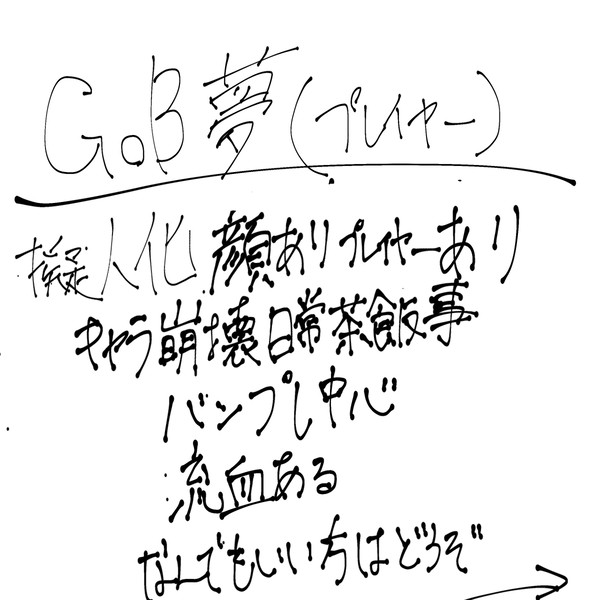 GoB夢(プレイヤー)
擬人化 顔ありプレイヤーあり
キャラ崩壊日常茶飯事
バンプレ中心
流血ある
なんでもいい方はどうぞ